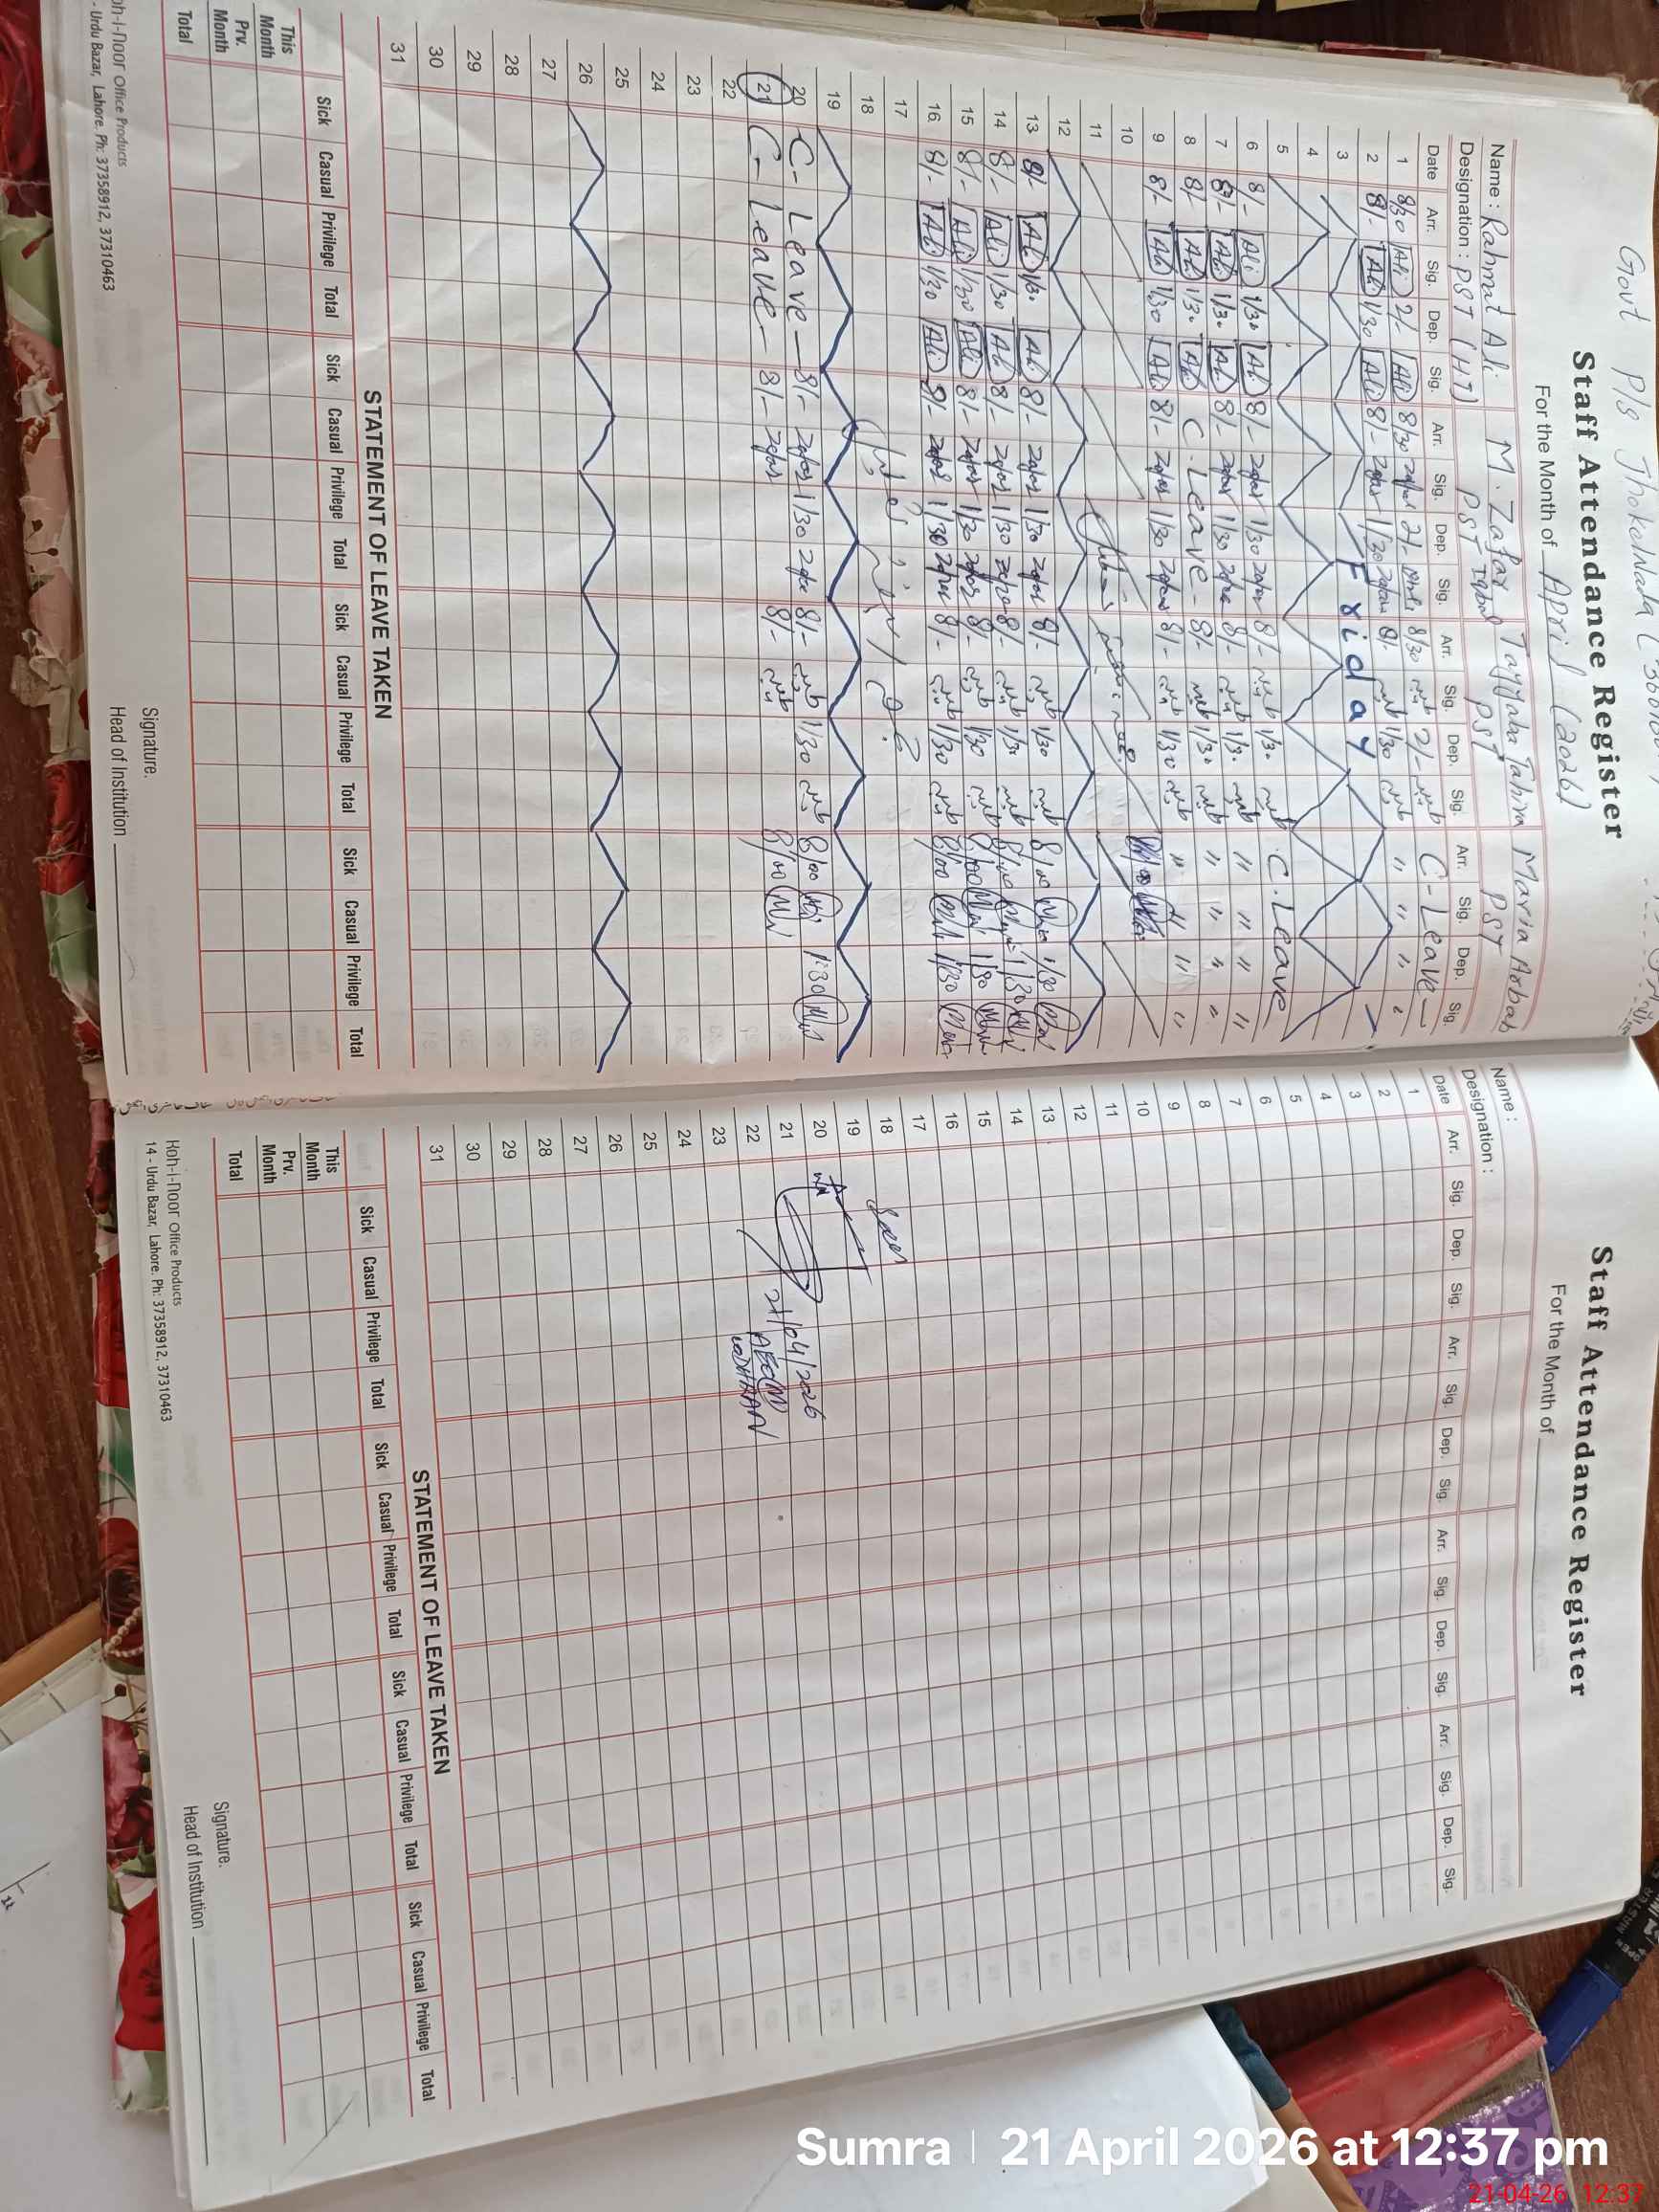 Govt P/S Jhokelwala
Staff Attendance Register
For the Month of April (2026)
Name : Rahmat Ali M. Zafar Iqbal Tayyaba Tahira Maria Arbab
Designation : PST (HT) PST PST PST
Date Arr. Sig. Dep. Sig. Arr. Sig. Dep. Sig. Arr. Sig. Dep. Sig. Arr. Sig. Dep. Sig.
1 8/30 Ali 2/- Ali 8/30 Zafar 2/- 8/30 طیبہ 2/- طیبہ C-Leave
2 8/- Ali 1/30 Ali 8/- Zafar 1/30 Zafar 8/- طیبہ 1/30 طیبہ " " "
3 Friday
4
5
6 8/- Ali 1/30 Ali 8/- Zafar 1/30 Zafar 8/- طیبہ 1/30 طیبہ C.Leave
7 8/- Ali 1/30 Ali 8/- Zafar 1/30 Zafar 8/- طیبہ 1/30 طیبہ " " " "
8 8/- Ali 1/30 Ali C.Leave- 8/- طیبہ 1/30 طیبہ " " " "
9 8/- Ali 1/30 Ali 8/- Zafar 1/30 Zafar 8/- طیبہ 1/30 طیبہ " " " "
10
11
12
13 8/- Ali 1/30 Ali 8/- Zafar 1/30 Zafar 8/- طیبہ 1/30 طیبہ 8/00 1/30
14 8/- Ali 1/30 Ali 8/- Zafar 1/30 Zafar 8/- طیبہ 1/30 طیبہ 8/00 1:30
15 8/- Ali 1/30 Ali 8/- Zafar 1/30 Zafar 8/- طیبہ 1/30 طیبہ 8/00 1/30
16 8/- Ali 1/30 Ali 8/- Zafar 1/30 Zafar 8/- طیبہ 1/30 طیبہ 8/00 1/30
17
18
19
20 C- Leave 8/- Zafar 1/30 Zafar 8/- طیبہ 1/30 طیبہ 8/00 1:30
21 C- Leave- 8/- Zafar 8/- طیبہ 8/00
22
23
24
25
26
27
28
29
30
31
STATEMENT OF LEAVE TAKEN
Sick Casual Privilege Total Sick Casual Privilege Total Sick Casual Privilege Total Sick Casual Privilege Total
This Month
Prv. Month
Total
Signature.
Head of Institution
oh-i-noor Office Products
- Urdu Bazar, Lahore. Ph: 37358912, 37310463
Staff Attendance Register
For the Month of
Name :
Designation :
Date Arr. Sig. Dep. Sig. Arr. Sig. Dep. Sig. Arr. Sig. Dep. Sig. Arr. Sig. Dep. Sig.
1
2
3
4
5
6
7
8
9
10
11
12
13
14
15
16
17
18
19
20
21 21/04/2026
22
LODHRAN
23
24
25
26
27
28
29
30
31
STATEMENT OF LEAVE TAKEN
Sick Casual Privilege Total Sick Casual Privilege Total Sick Casual Privilege Total Sick Casual Privilege Total
This Month
Prv. Month
Total
Signature.
Head of Institution
Koh-i-noor Office Products
14 - Urdu Bazar, Lahore. Ph: 37358912, 37310463
Sumra | 21 April 2026 at 12:37 pm
21-04-26 12:37